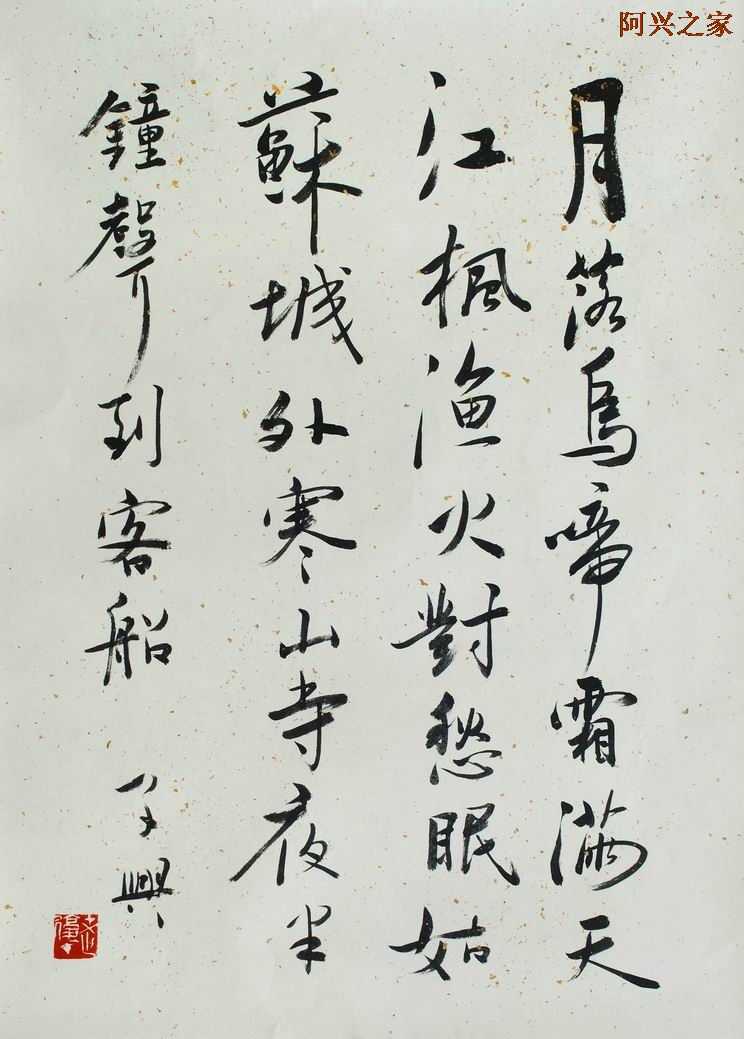 阿兴之家
月落烏啼霜滿天
江楓漁火對愁眠姑
蘇城外寒山寺夜半
鐘聲到客船
興